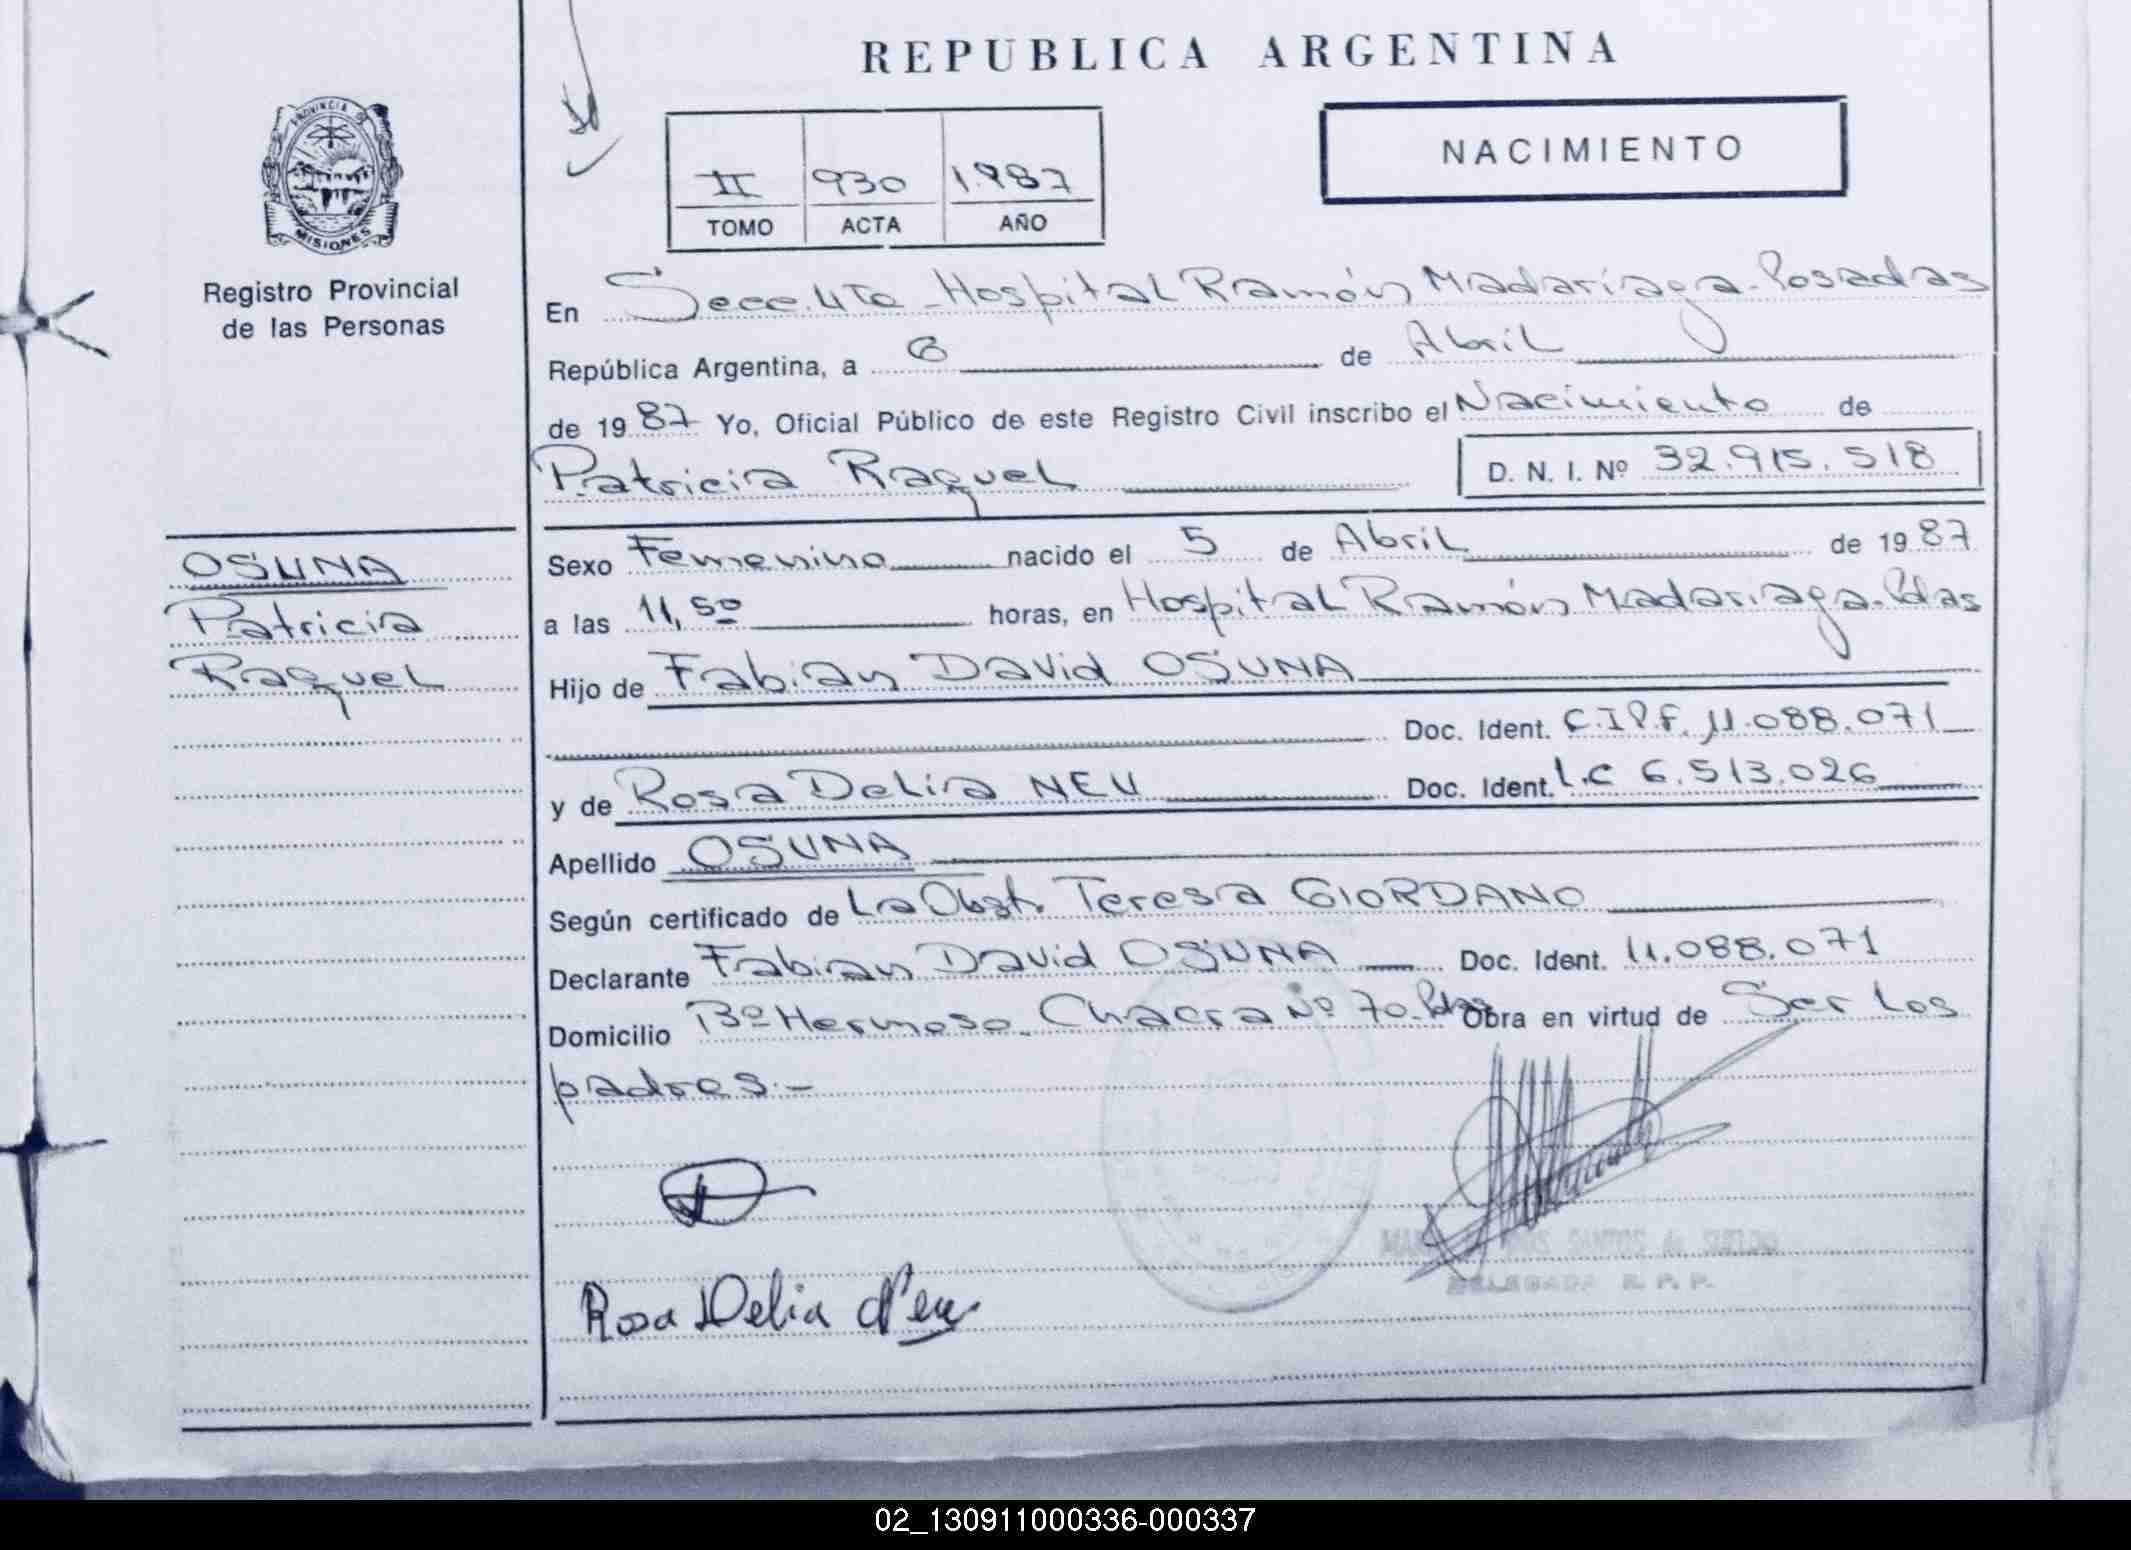 REPUBLICA ARGENTINA
PROVINCIA
MISIONES
Registro Provincial
de las Personas
II 930 1.987
TOMO ACTA AÑO
NACIMIENTO
En Secc. 4ta - Hospital Ramón Madariaga - Posadas
República Argentina, a 6 de Abril
de 1987 Yo, Oficial Público de este Registro Civil inscribo el Nacimiento de
Patricia Raquel D. N. I. Nº 32.915.518
OSUNA
Patricia
Raquel
Sexo Femenino nacido el 5 de Abril de 1987
a las 11,50 horas, en Hospital Ramón Madariaga - Pdas
Hijo de Fabian David OSUNA
Doc. Ident. C.I.P.F. 11.088.071
y de Rosa Delia NEU Doc. Ident. L.C 6.513.026
Apellido OSUNA
Según certificado de La Obst. Teresa GIORDANO
Declarante Fabian David OSUNA Doc. Ident. 11.088.071
Domicilio Bº Hermoso - Chacra Nº 70 - Pdas Obra en virtud de Ser Los
padres.-
SANTOS de
DELEGADA R. P. P.
Rosa Delia Neu
02_130911000336-000337